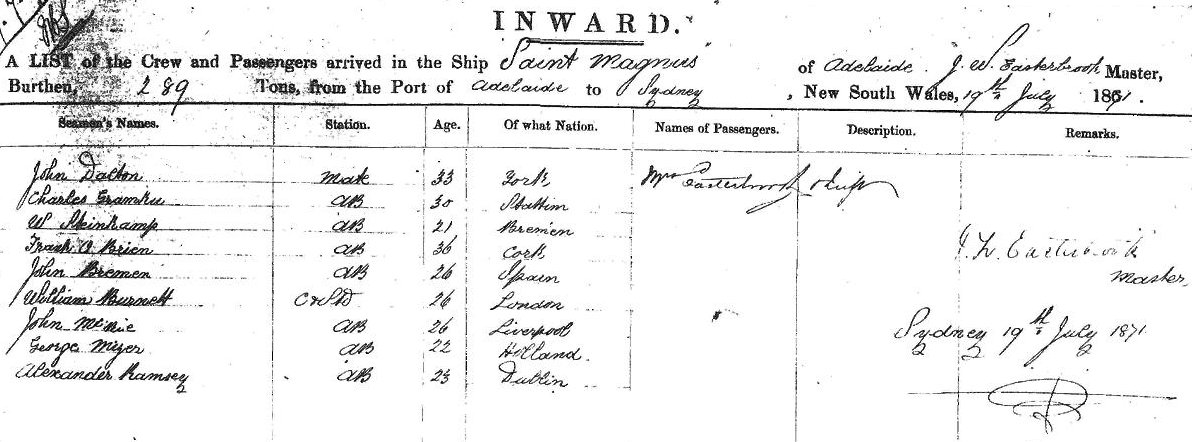 INWARD.
A LIST of the Crew and Passengers arrived in the Ship Saint Magnus of Adelaide J. W. Easterbrook Master,
Burthen, 289 Tons, from the Port of Adelaide to Sydney, New South Wales, 19th July 1871.
Seamen's Names. Station. Age. Of what Nation. Names of Passengers. Description. Remarks.
John Dalton Mate 33 York Mrs Easterbrook
Charles AB 30 Stattin
W Steinkamp AB 21 Bremen
Frank O Brien AB 36 Cork J. W. Easterbrook
John Bremen AB 26 Spain Master
William Burnett C & Std 26 London
John AB 26 Liverpool Sydney 19th July 1871
George Miger AB 22 Holland.
Alexander Ramsey AB 23 Dublin